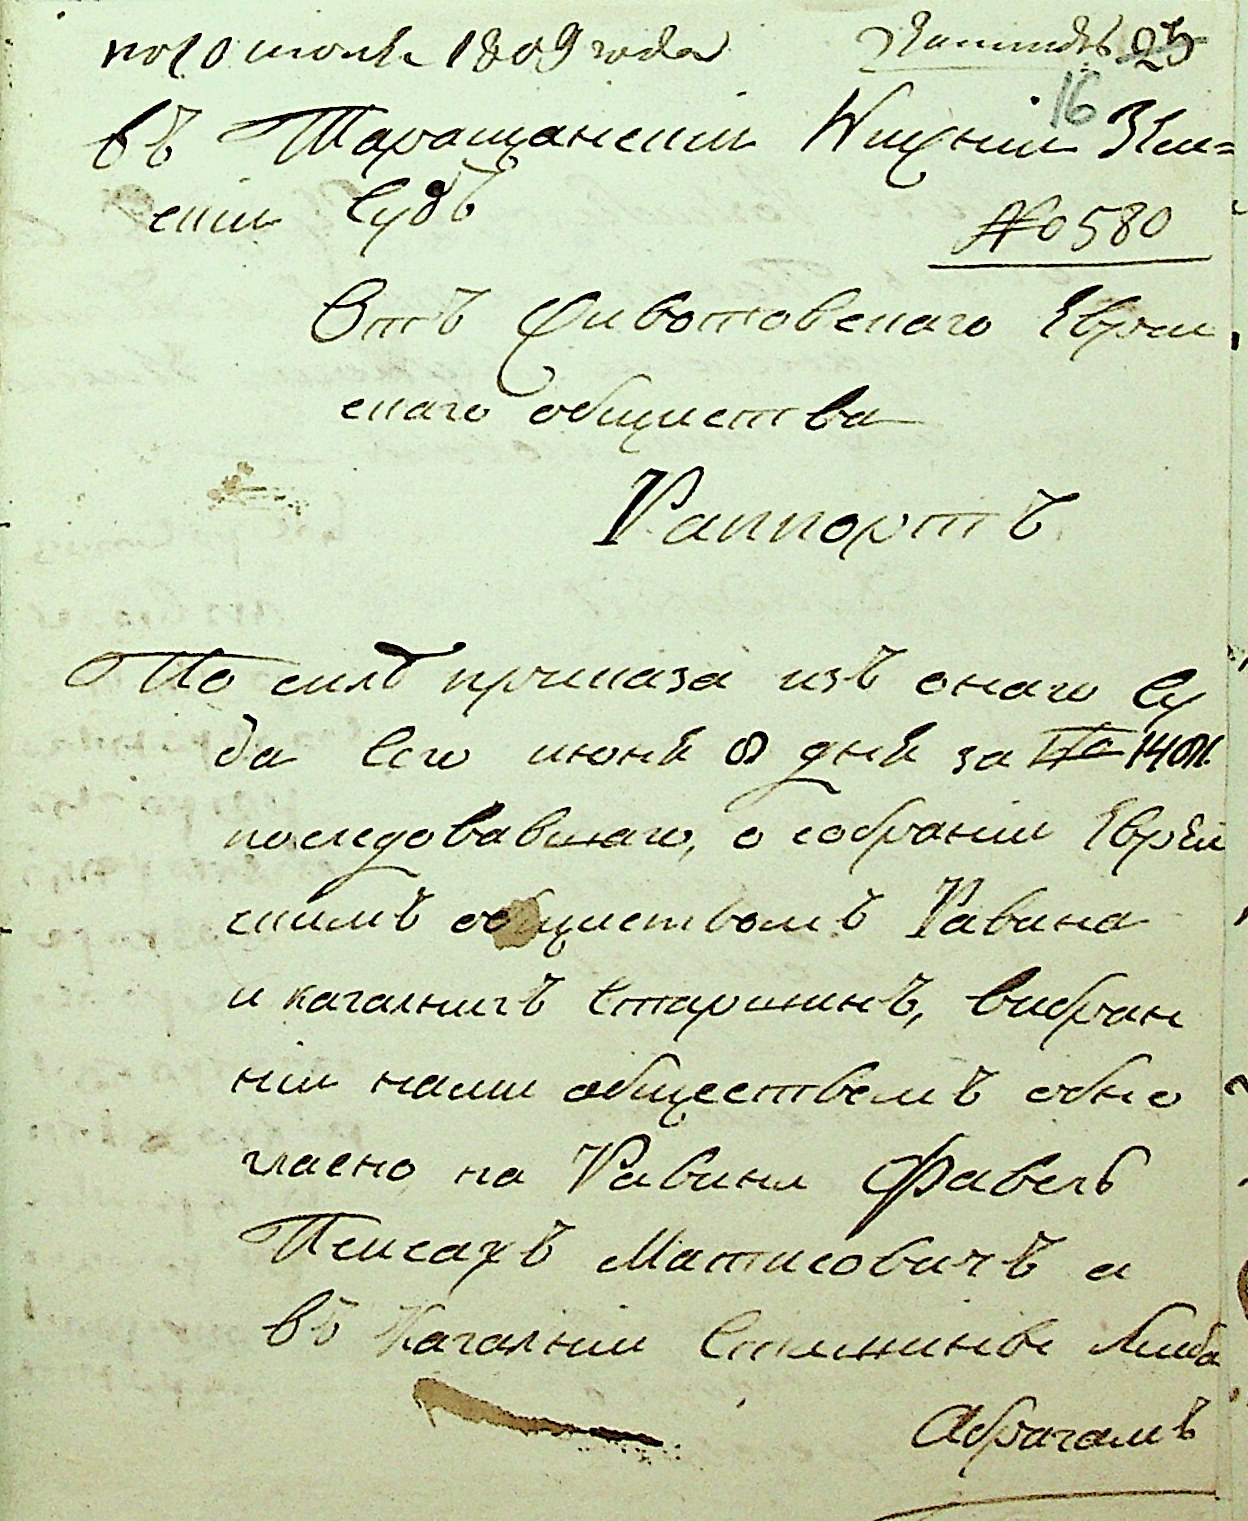 июля 1809 года 25
16
въ Таращанский Нижний Зем=
ский Судъ
№ 580
Отъ Животовскаго Еврей
скаго общества
Раппортъ
По силѣ приказа изъ онаго Су
да сего июня 8 дня за №
последовавшаго, о собрании Еврей
скимъ обществомъ Равина
и кагалнихъ Старшинъ, вибран
нии нами обществомъ едно
гласно на Равина
Пейсахъ Матисовичъ а
въ Кагалнии
Абрагамъ